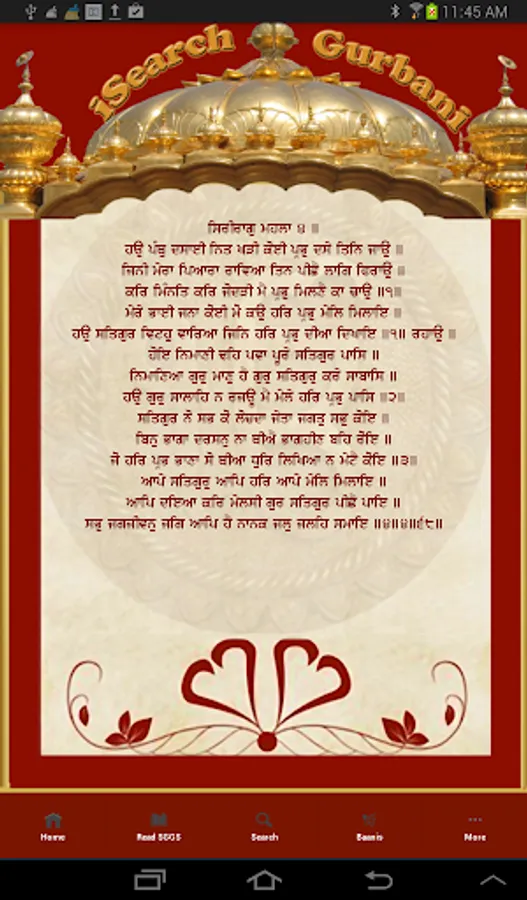 11:45 AM
iSearch Gurbani
ਸਿਰੀਰਾਗੁ ਮਹਲਾ ੪ ॥
ਹਉ ਪੰਥੁ ਦਸਾਈ ਨਿਤ ਖੜੀ ਕੋਈ ਪ੍ਰਭੁ ਦਸੇ ਤਿਨਿ ਜਾਉ ॥
ਜਿਨੀ ਮੇਰਾ ਪਿਆਰਾ ਰਾਵਿਆ ਤਿਨ ਪੀਛੈ ਲਾਗਿ ਫਿਰਾਉ ॥
ਕਰਿ ਮਿੰਨਤਿ ਕਰਿ ਜੋਦੜੀ ਮੈ ਪ੍ਰਭੁ ਮਿਲਣੈ ਕਾ ਚਾਉ ॥੧॥
ਮੇਰੇ ਭਾਈ ਜਨਾ ਕੋਈ ਮੋ ਕਉ ਹਰਿ ਪ੍ਰਭੁ ਮੇਲਿ ਮਿਲਾਇ ॥
ਹਉ ਸਤਿਗੁਰ ਵਿਟਹੁ ਵਾਰਿਆ ਜਿਨਿ ਹਰਿ ਪ੍ਰਭੁ ਦੀਆ ਦਿਖਾਇ ॥੧॥ ਰਹਾਉ ॥
ਹੋਇ ਨਿਮਾਣੀ ਢਹਿ ਪਵਾ ਪੂਰੇ ਸਤਿਗੁਰ ਪਾਸਿ ॥
ਨਿਮਾਣਿਆ ਗੁਰੁ ਮਾਣੁ ਹੈ ਗੁਰੁ ਸਤਿਗੁਰੁ ਕਰੇ ਸਾਬਾਸਿ ॥
ਹਉ ਗੁਰੁ ਸਾਲਾਹਿ ਨ ਰਜਊ ਮੈ ਮੇਲੇ ਹਰਿ ਪ੍ਰਭੁ ਪਾਸਿ ॥੨॥
ਸਤਿਗੁਰ ਨੋ ਸਭ ਕੋ ਲੋਚਦਾ ਜੇਤਾ ਜਗਤੁ ਸਭੁ ਕੋਇ ॥
ਬਿਨੁ ਭਾਗਾ ਦਰਸਨੁ ਨਾ ਥੀਐ ਭਾਗਹੀਣ ਬਹਿ ਰੋਇ ॥
ਜੋ ਹਰਿ ਪ੍ਰਭ ਭਾਣਾ ਸੋ ਥੀਆ ਧੁਰਿ ਲਿਖਿਆ ਨ ਮੇਟੈ ਕੋਇ ॥੩॥
ਆਪੇ ਸਤਿਗੁਰੁ ਆਪਿ ਹਰਿ ਆਪੇ ਮੇਲਿ ਮਿਲਾਇ ॥
ਆਪਿ ਦਇਆ ਕਰਿ ਮੇਲਸੀ ਗੁਰ ਸਤਿਗੁਰ ਪੀਛੈ ਪਾਇ ॥
ਸਭੁ ਜਗਜੀਵਨੁ ਜਗਿ ਆਪਿ ਹੈ ਨਾਨਕ ਜਲੁ ਜਲਹਿ ਸਮਾਇ ॥੪॥੪॥੬੮॥
Home Read SGGS Search Baanis More